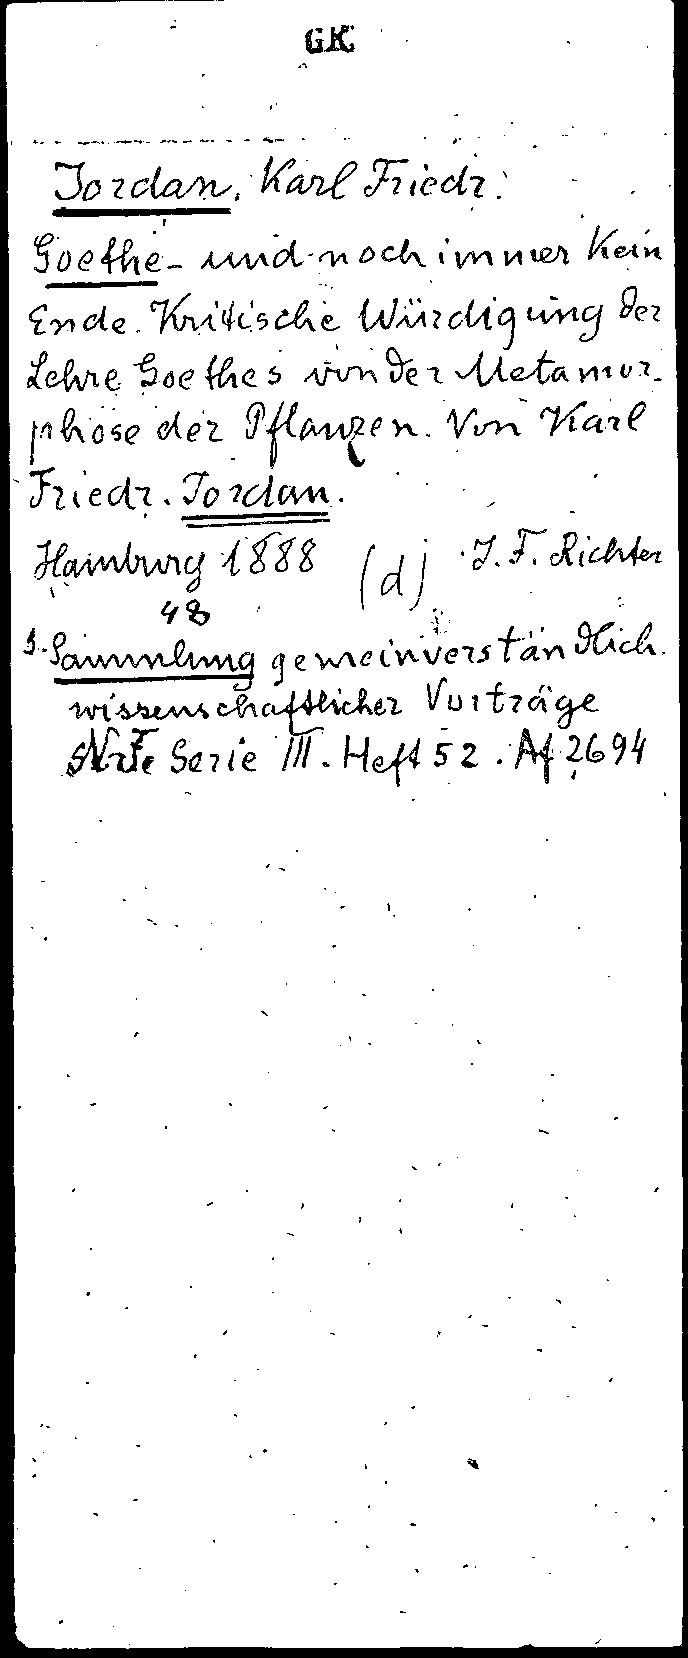 GK
Jordan, Karl Friedr.
Goethe - und noch immer kein
Ende. Kritische Würdigung der
Lehre Goethes von der Metamor-
phose der Pflanzen. Von Karl
Friedr. Jordan.
Hamburg 1888 (d) J. F. Richter
48
s. Sammlung gemeinverständlich
wissenschaftlicher Vorträge
Serie III. Heft 52. Af 2694